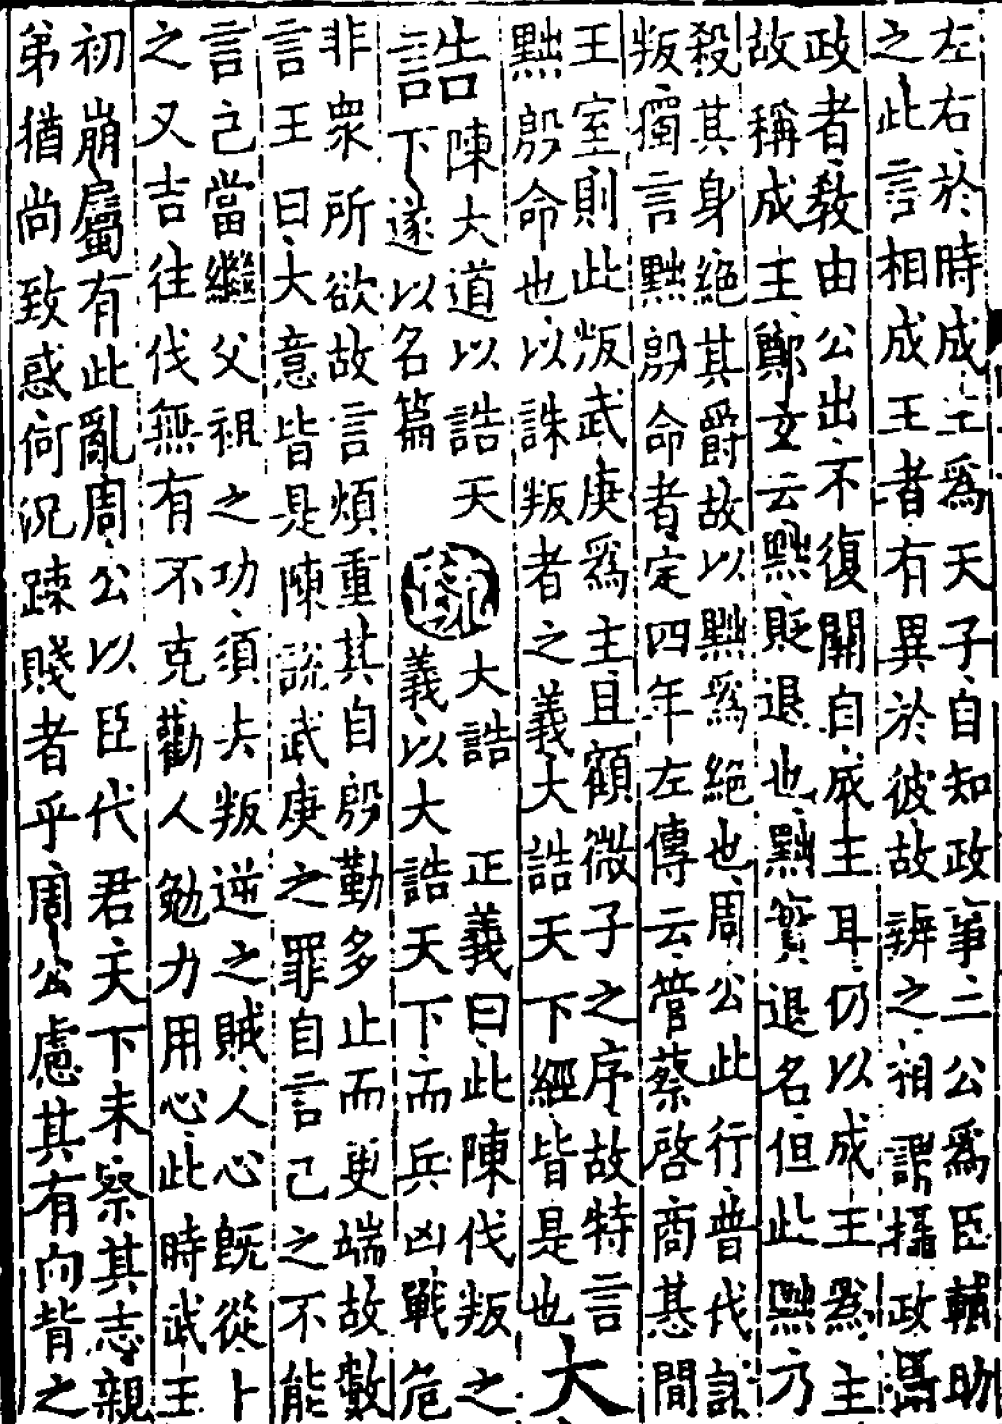 左右於時成王爲天子自知政事二公爲臣輔助
之此言相成王者有異於彼故辨之相謂攝政攝
政者敎由公出不復關自成王耳仍以成王爲主
故稱成王鄭玄云黜貶退也黜實退名但此黜乃
殺其身絶其爵故以黜爲絶也周公此行普伐諸
叛獨言黜殷命者定四年左傳云管蔡啓商惎間
王室則此叛武庚爲主且顧微子之序故特言
黜殷命也以誅叛者之義大誥天下經皆是也大
誥
陳大道以誥天
下遂以名篇
疏
大誥 正義曰此陳伐叛之
義以大誥天下而兵凶戰危
非衆所欲故言煩重其自殷勤多止而更端故數
言王曰大意皆是陳說武庚之罪自言己之不能
言己當繼父祖之功須去叛逆之賊人心旣從卜
之又吉往伐無有不克勸人勉力用心此時武王
初崩屬有此亂周公以臣代君天下未察其志親
弟猶尚致惑何況疎賤者乎周公慮其有向背之